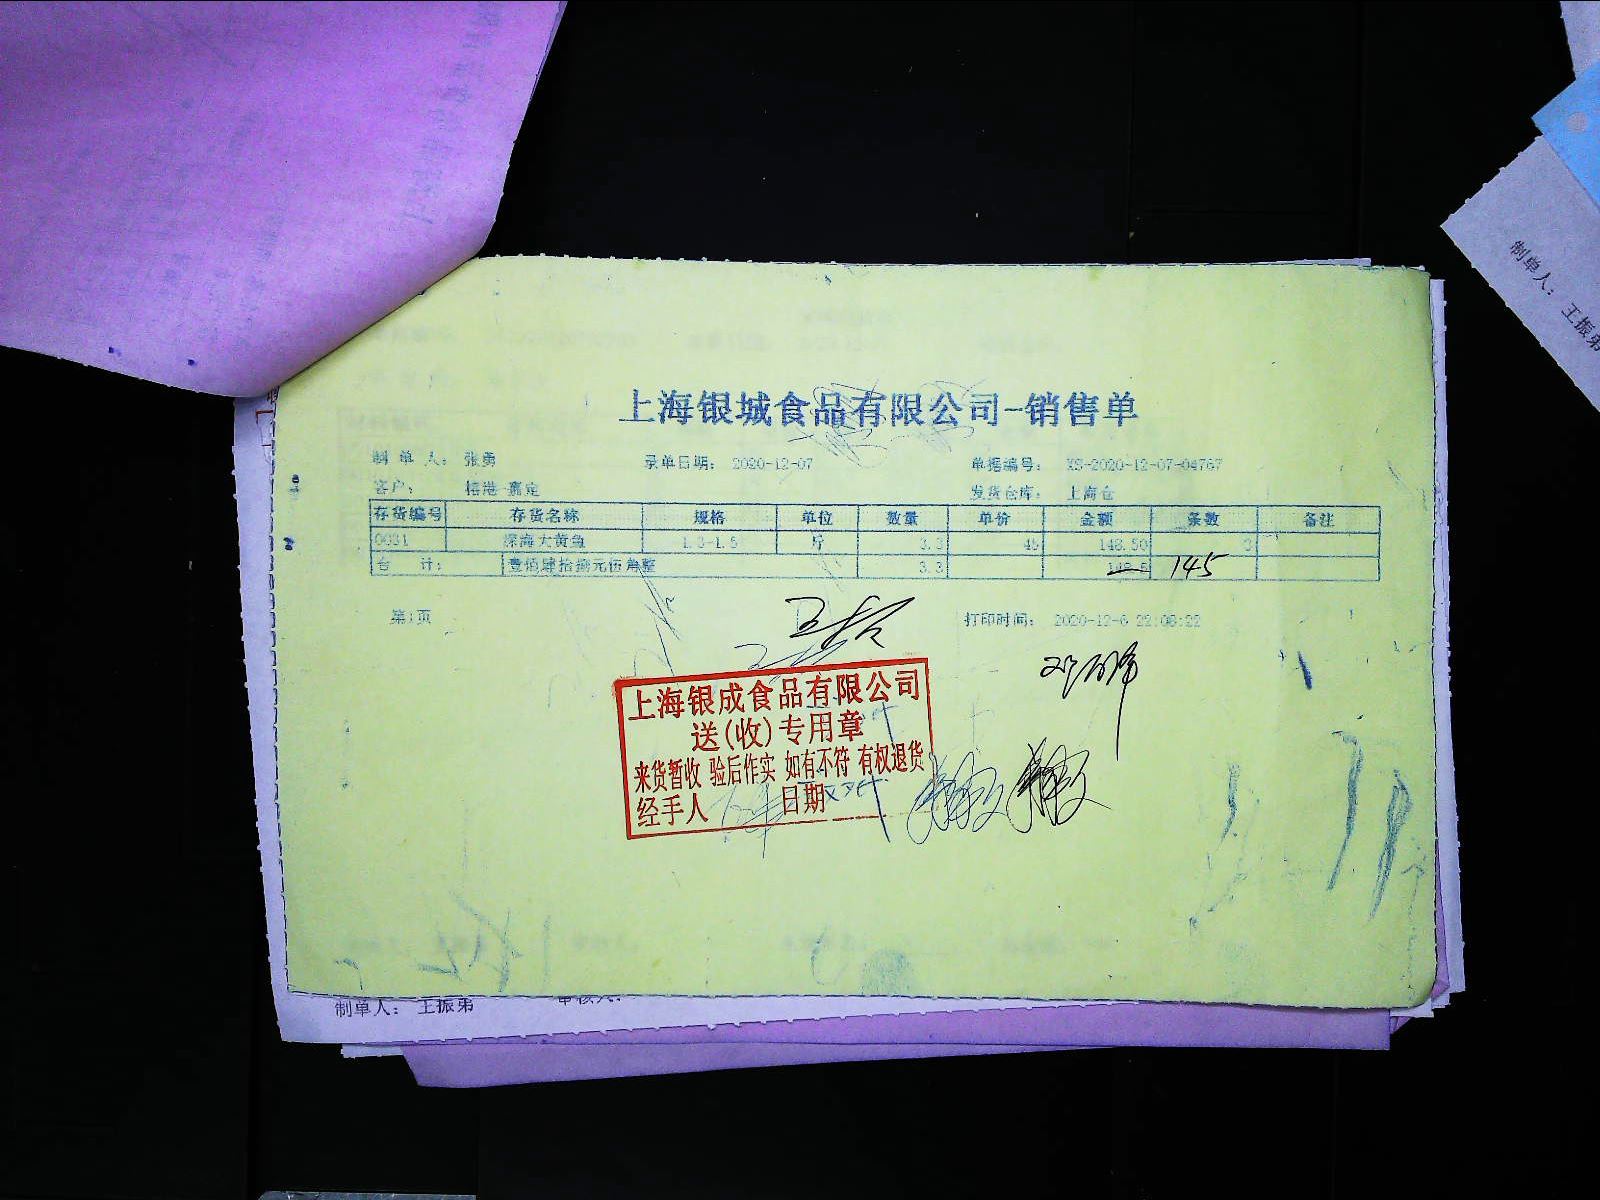 上海银城食品有限公司-销售单
制单人： 张勇 录单日期： 2020-12-07 单据编号： XS-2020-12-07-04767
客户： 嘉定 发货仓库： 上海仓
存货编号 存货名称 规格 单位 数量 单价 金额 条数 备注
0031 深海大黄鱼 1.3-1.5 斤 3.3 45 148.50 3
合 计： 壹佰肆拾捌元伍角整 3.3 148.5 145
第1页 打印时间： 2020-12-6 22:08:22
上海银成食品有限公司
送(收)专用章
来货暂收 验后作实 如有不符 有权退货
经手人 日期
制单人： 王振弟 审核人：
制单人： 王振弟